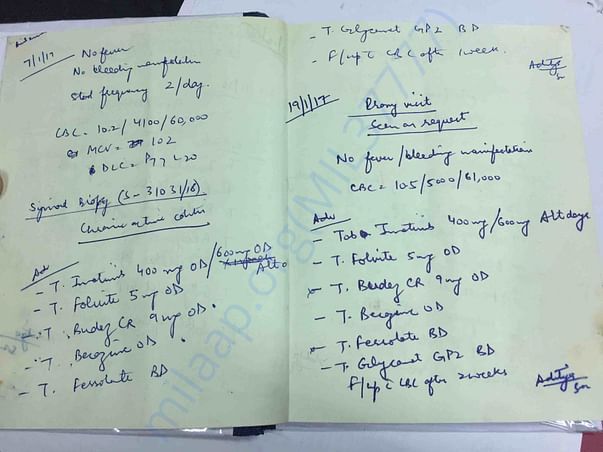 7/1/17 No fever
No bleeding manifestation
Stool frequency 2/day.
CBC = 10.2/4100/60,000
MCV = 102
DLC = P77 L20
Sigmoid Biopsy (S-31031/16)
Chronic active colitis
Adv
- T. Imatinib 400 mg OD/600mg OD
Alt
- T. Folvite 5mg OD
- T. Budez CR 9mg OD.
- T. Becozinc OD.
- T. Ferrolate BD
- T. Glycomet GP2 BD
- F/up c CBC after 1 week.
Aditya
19/1/17
Proxy visit
Seen on request
No fever/bleeding manifestation
CBC = 10.5/5000/61,000
Adv
- Tab Imatinib 400mg/600mg Alt days
- T. Folvite 5mg OD
- T. Budez CR 9mg OD
- T. Becozinc OD
- T. Ferrolate BD
- T. Glycomet GP2 BD
F/up c CBC after 2 weeks
Aditya
milaap.org(MIL37777)